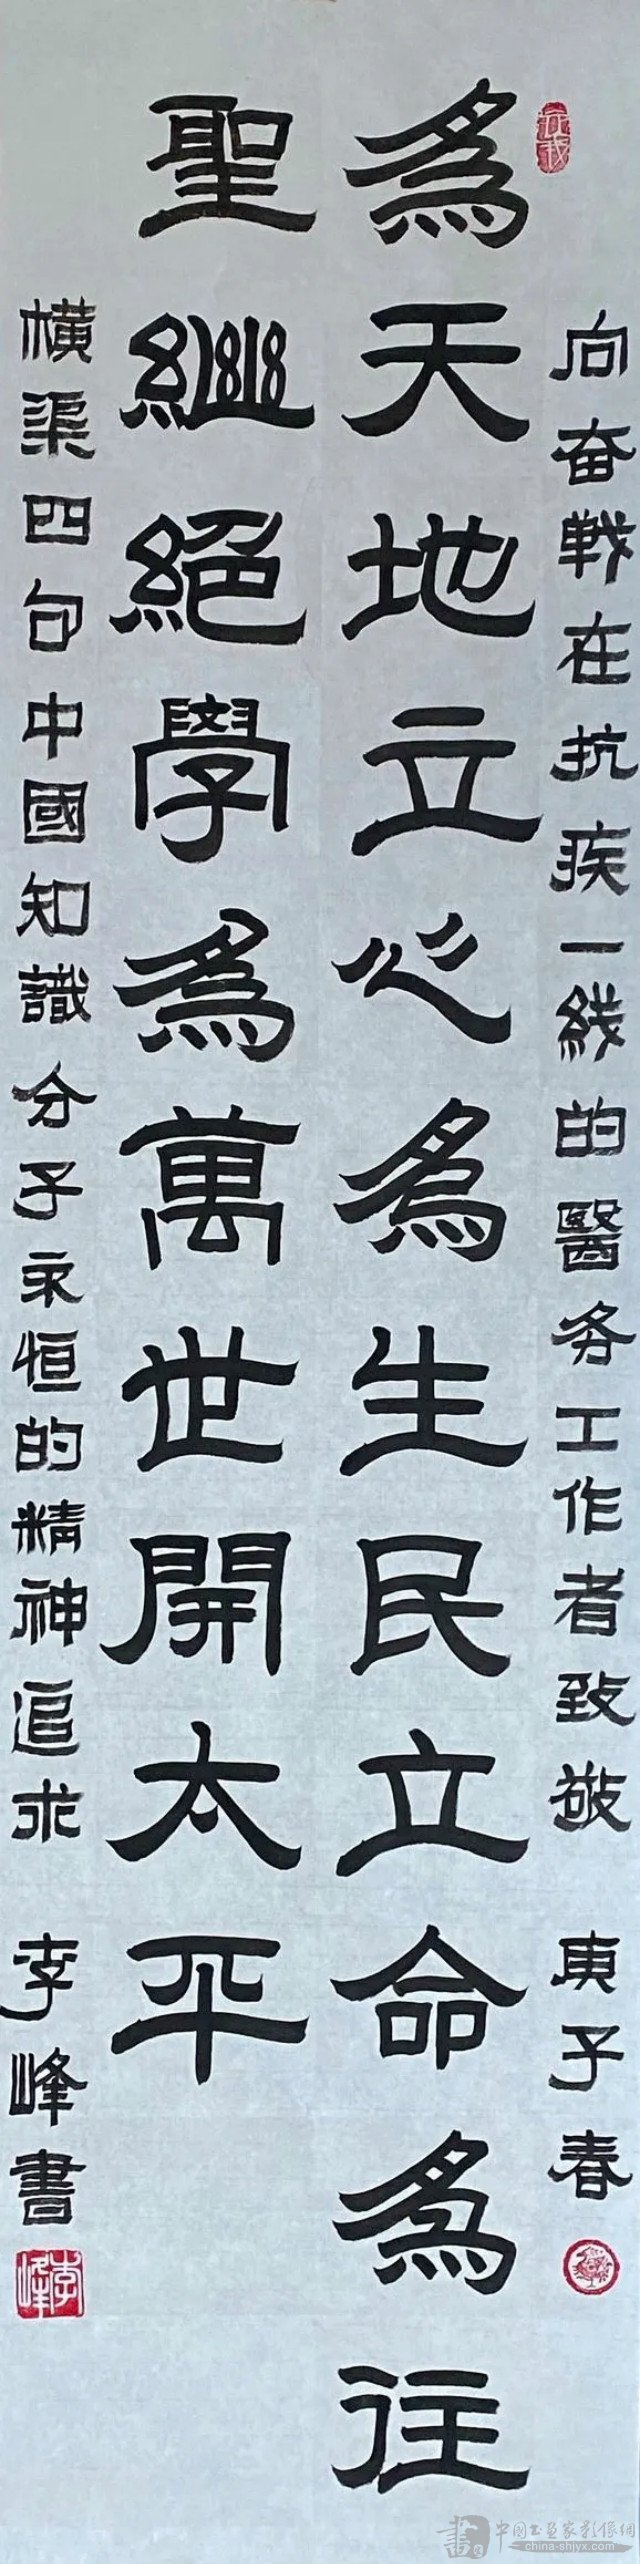 向奋戰在抗疾一线的醫务工作者致敬 庚子春
為天地立心為生民立命為往
聖繼絕學為萬世開太平
橫渠四句中國知識分子永恒的精神追求 李峰書
李峰
書 中國书画家影像網
china-shjyx.com